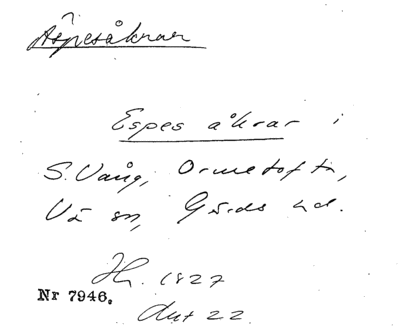 Äspesåkrar
Espes åkrar i
S. Vång, Ormetofta,
Vä sn, Gärds hd.
Jh. 1827
Nr 7946.
Akt 22